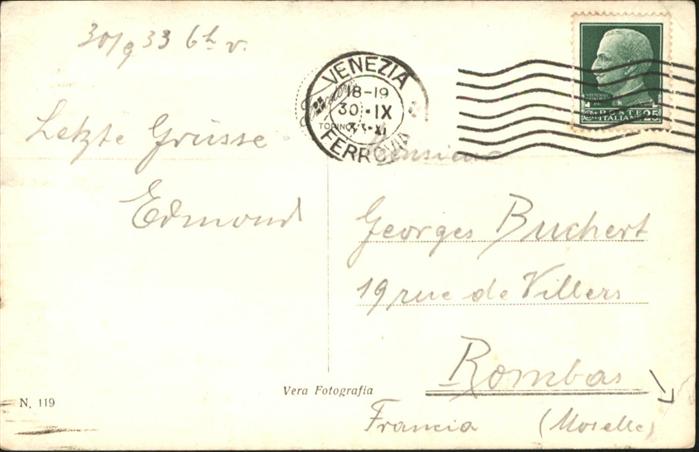 30/9 33 6h v.
Letzte Grüsse
Edmond
VENEZIA
18-19
30·IX
XI
FERROVIA
POSTE
ITALIANE 25
Monsieur
Georges Buchert
19 rue de Villers
Rombas
Francia (Moselle)
Vera Fotografia
N. 119